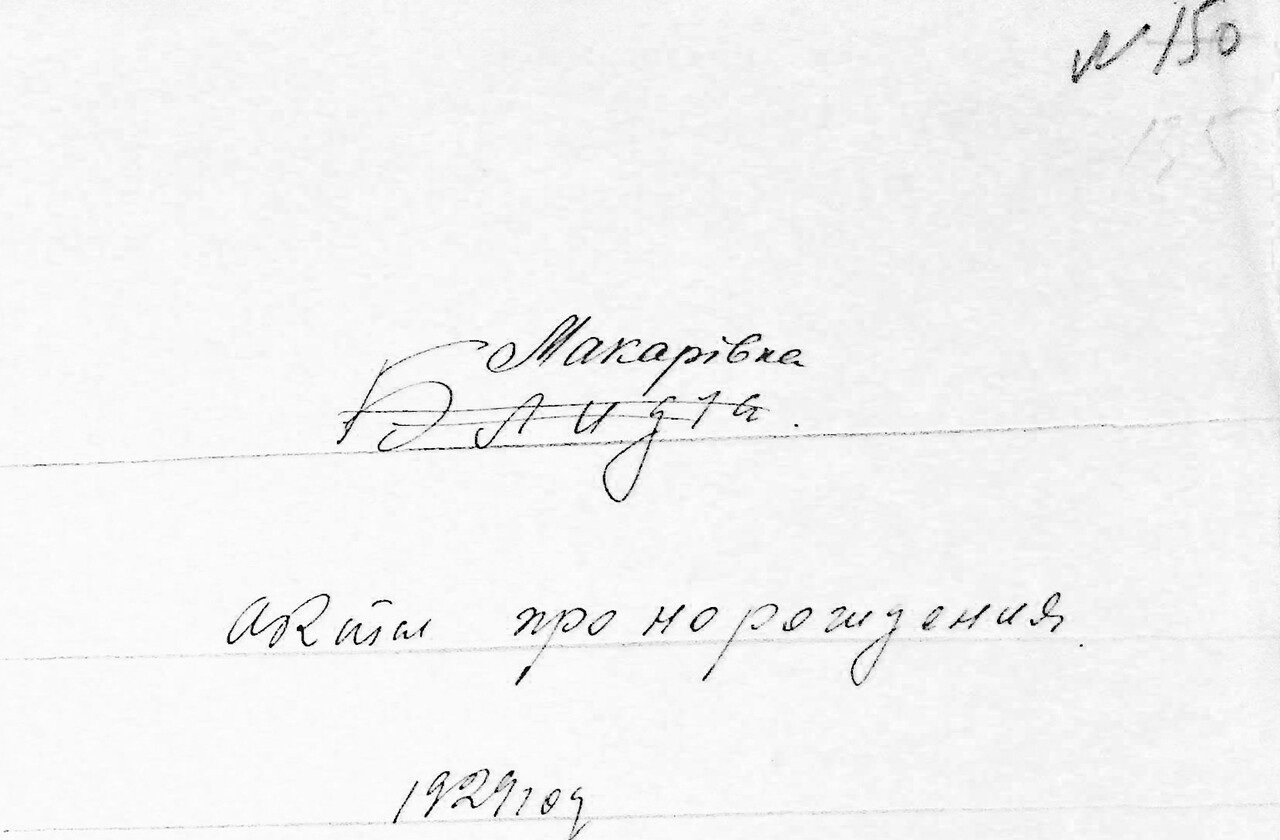 N 150
135
Макарівка
акти про норождения.
1929 год